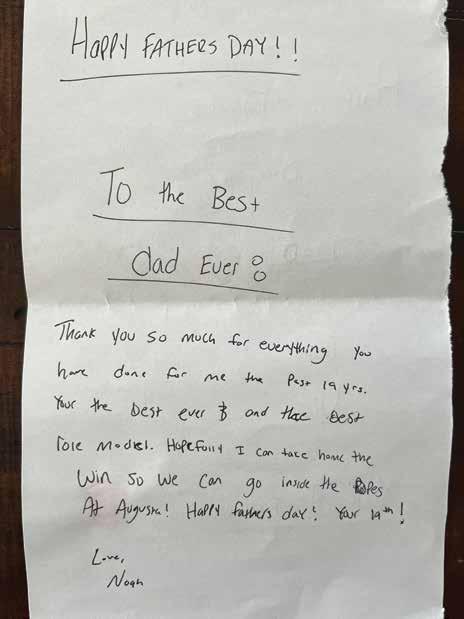 HAPPY FATHERS DAY!!
To the Best
Dad Ever :
Thank you so much for everything you
have done for me the Past 19 yrs.
Your the best ever & and the best
role model. Hopefully I can take home the
Win so we can go inside the Ropes
At Augusta! Happy fathers day! Your 19th!
Love,
Noah